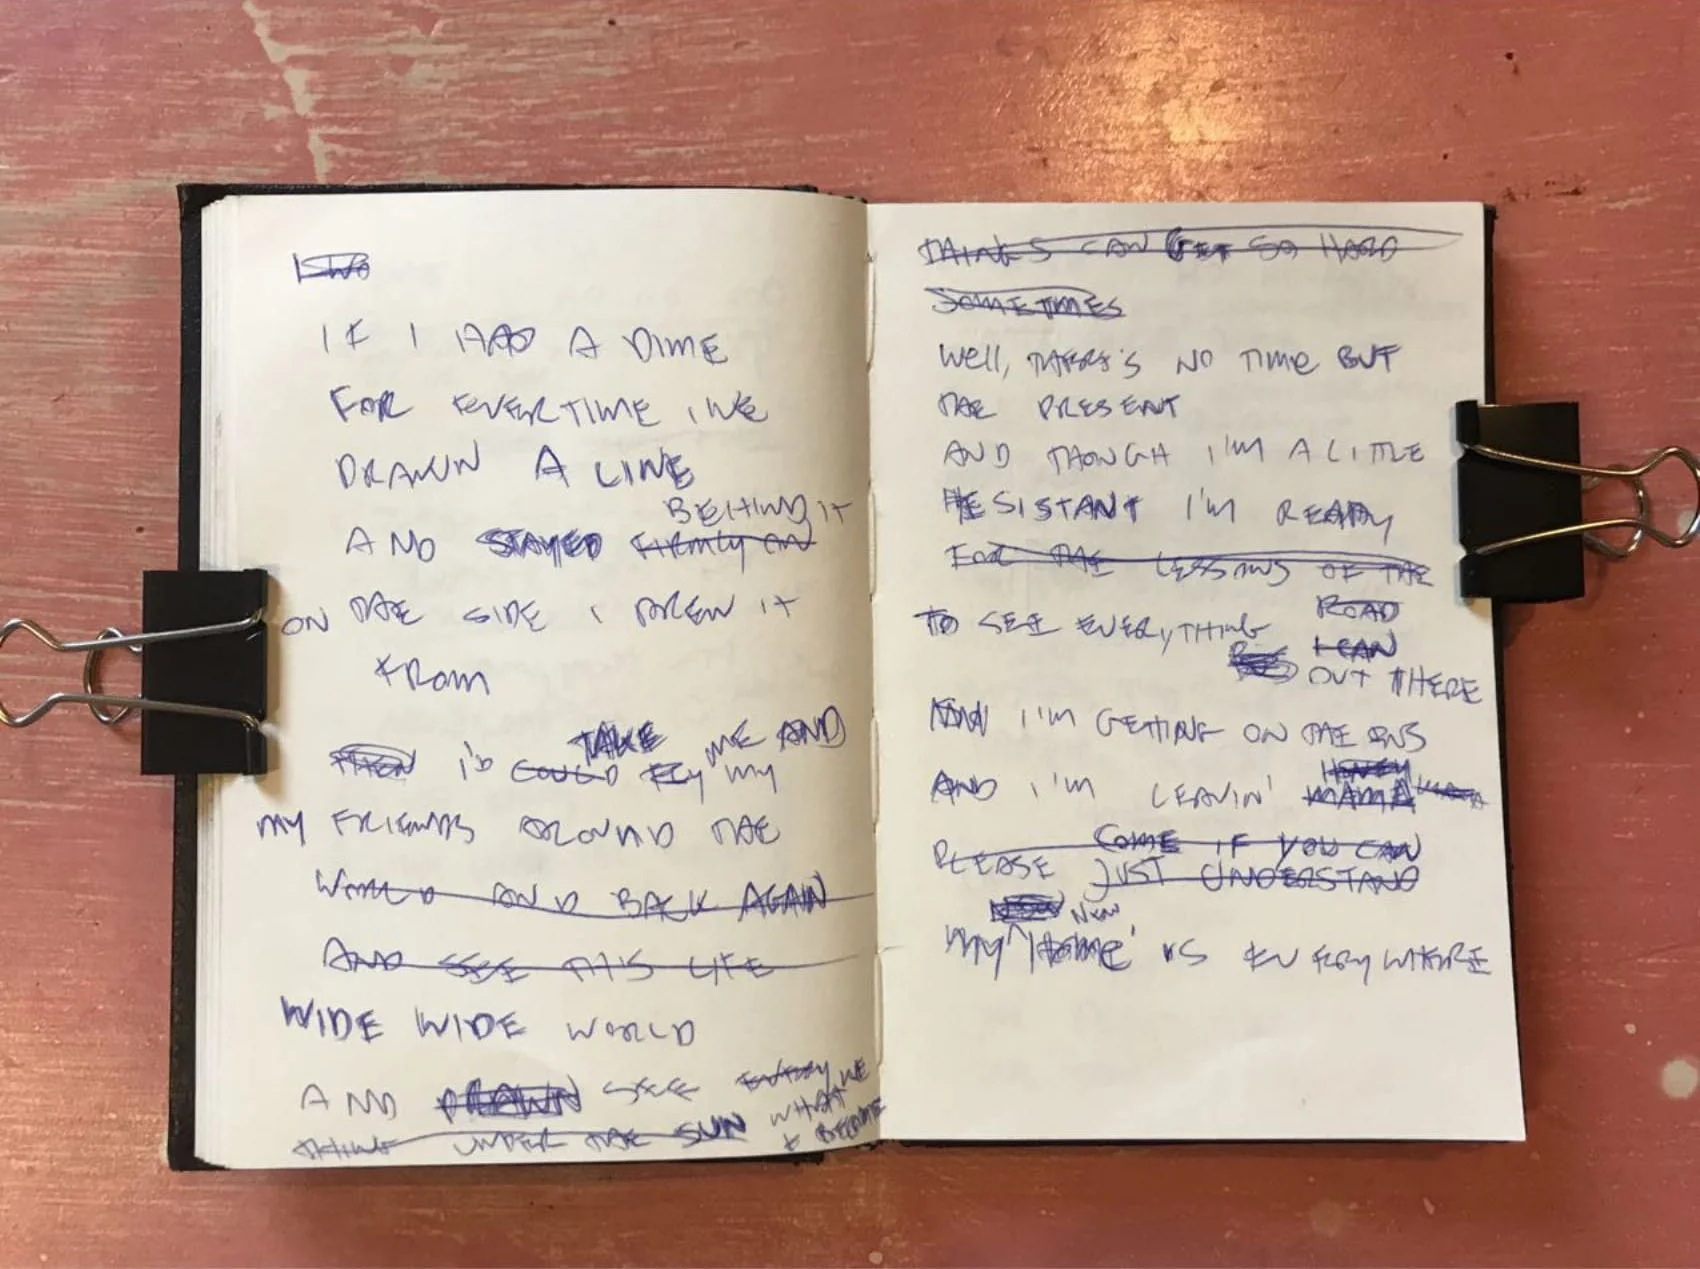 IF I HAD A DIME
FOR EVERTIME I'VE
DRAWN A LINE
BEHIND IT
AND STAYED FIRMLY ON
ON THE SIDE I DREW IT
FROM
TAKE ME AND
THEN I'D COULD FLY MY
MY FRIENDS AROUND THE
WORLD AND BACK AGAIN
AND SEE THIS LIFE
WIDE WIDE WORLD
AND DRAWN SEE EVERY WE
THING UNDER THE SUN WHAT
BECOME
THINGS CAN GET SO HARD
SOMETIMES
Well, THERE'S NO TIME BUT
THE PRESENT
AND THOUGH I'M A LITTLE
HESISTANT I'M READY
FOR THE LESSONS OF THE
ROAD
TO SEE EVERYTHING
I CAN
OUT THERE
NOW I'M GETTING ON THE BUS
HONEY
AND I'M LEAVIN' MAMA
COME IF YOU CAN
PLEASE JUST UNDERSTAND
NEW
MY 'HOME' IS EVERYWHERE